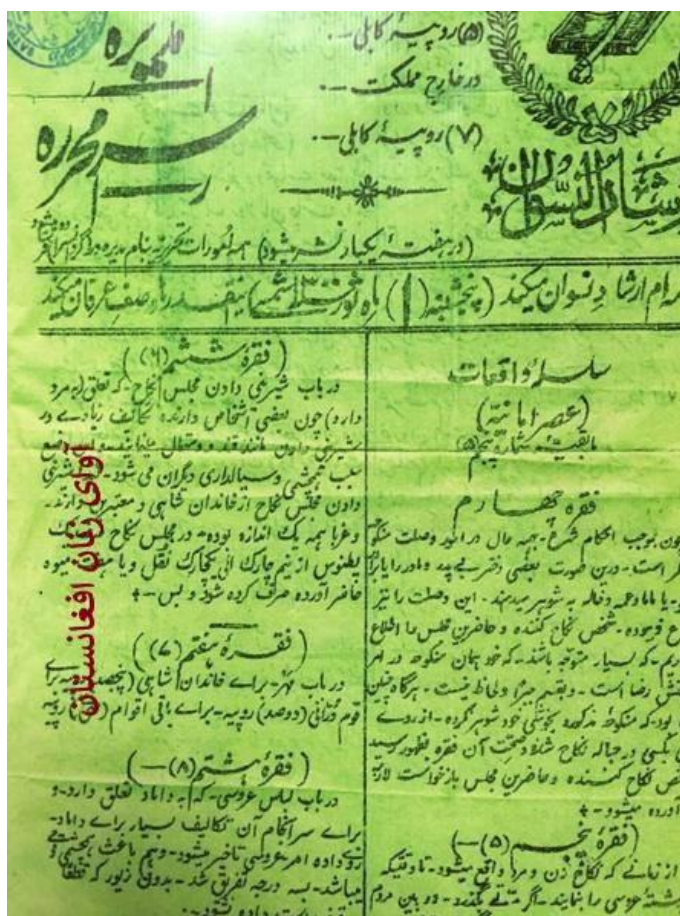 مدیره
اسر
سر محرره
(۵) روپیه کابلی -.
در خارج مملکت -.
(۷) روپیه کابلی -.
ارشاد النسوان
(در هفته یکبار نشر میشود) همه امورات تحریریه بنام مدیره
ارشادِ نسوان میکند (پنجشنبه (۱) ماه ثور
سلسلهٔ واقعات
(عصر امانیه)
مابقیه شماره پنجم
فقره چهارم
چون بموجب احکام شرع - همه حال در امور وصلت
است - درین صورت بعضی دختر بے پدر و مادر را
یا ماما و عمه و خاله به شوهر میدهند - این وصلت را نیز
فرموده - شخص نکاح کننده و حاضرین مجلس را اطلاع
که بسیار متوجه باشند - که خود همان منکوحه در امر
رضا است - و بقسم جبرا و لحاظ نیست - هرگاه چنین
بود که منکوحه مذکوره بخوشی خود شوهر نکرده - از روے
در حباله نکاح شده و صحت آن فقره بظهور رسید
نکاح کننده و حاضرین مجلس بازخواست لازمه
آورده میشود - +
(فقرهٔ پنجم (۵) -)
از زمانے که نکاح زن و مرد واقع میشود - تا وقتیکه
عروسی را نمایند - اگر مدتے بگذرد - در بین مردم
(فقرهٔ ششم (۶))
در باب شیرینی دادن مجلس نکاح - که تعلق (به مرد
دارد) چون بعضی اشخاص دارنده تکالیف زیادے در
شیرینی دادن مانند قند و دستمال مینمایند
سبب همچشمی و سیالداری دیگران می شود - شیرینی
دادن مجلس نکاح از خاندان شاهی و معتبر
و غربا همه یک اندازه بوده در مجلس نکاح
پطنوس از نیم چارک الی یکچارک نقل و یا میوه
حاضر آورده صرف کرده شود و بس - +
(فقرهٔ هفتم (۷))
در باب مهر - براے خاندان شاهی (پنجصد) براے
قوم درانی (دوصد) روپیه - براے باقی اقوام روپیه
(فقرهٔ هشتم (۸) -)
در باب لباس عروسی - که به داماد تعلق دارد - و
براے سرانجام آن تکالیف بسیار براے داماد -
روداده امر عروسی تاخیر میشود - و هم باعث همچشمی و
میباشد - بسه درجه تفریق شد - بدون زیور که قطعاً
آوای زنان افغانستان